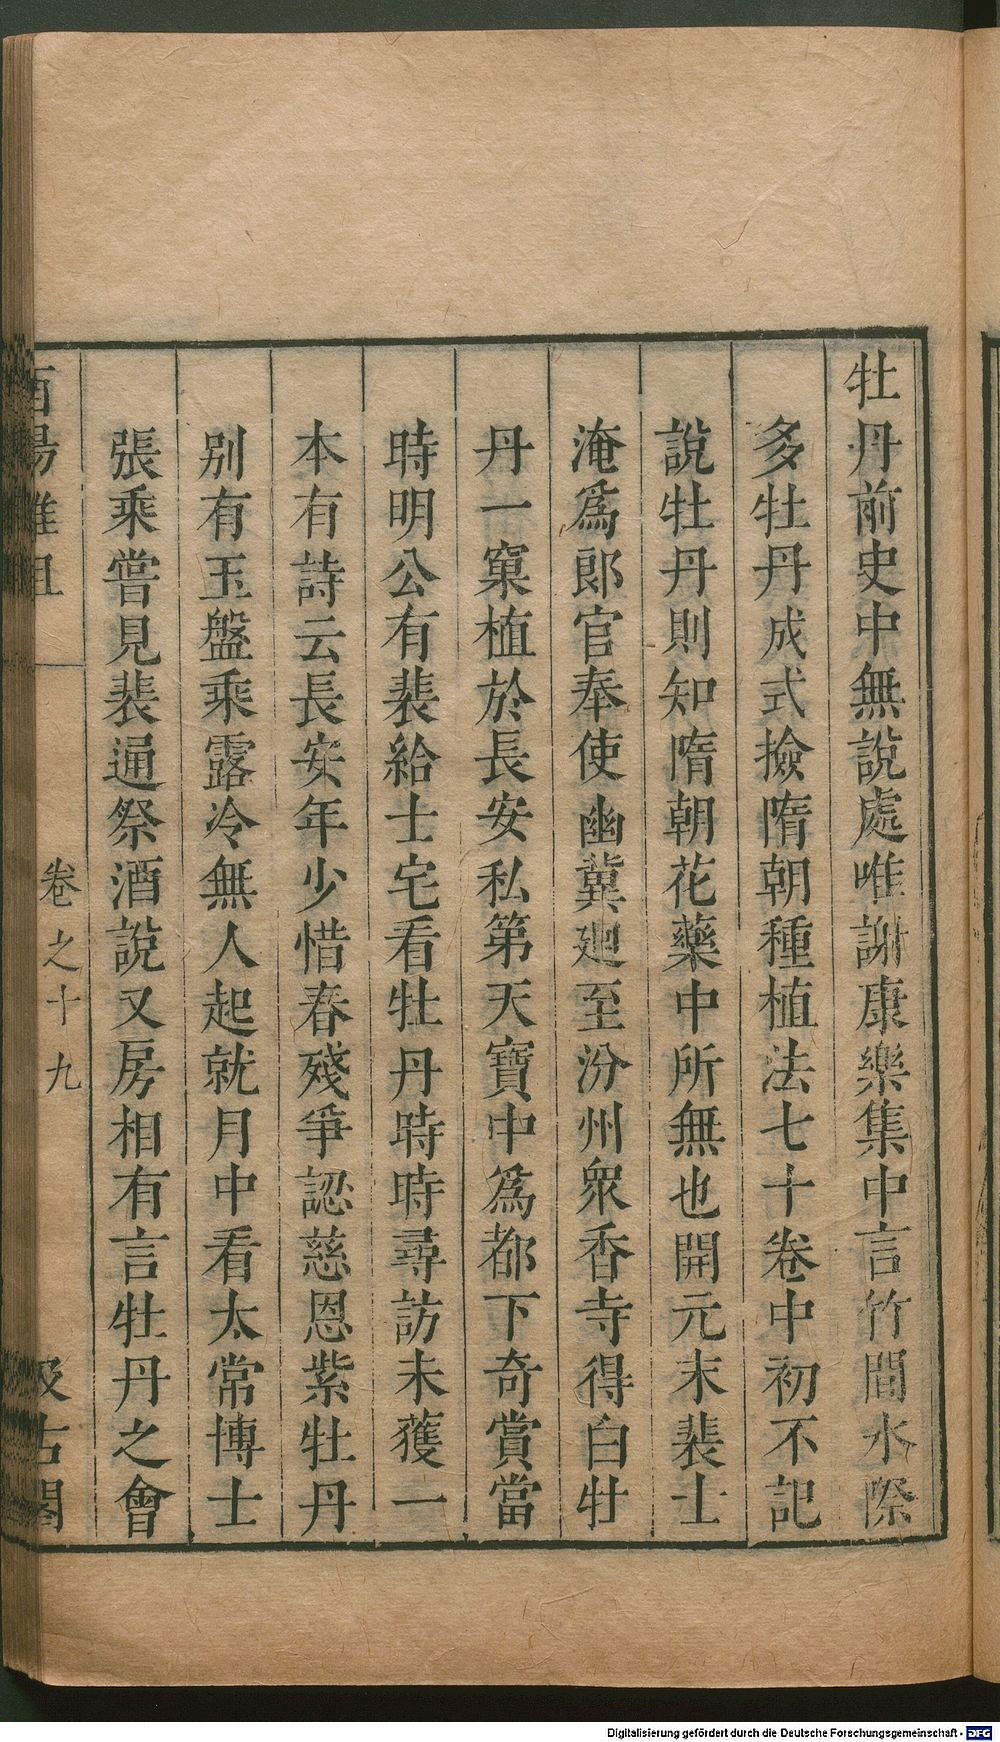 牡丹前史中無說處唯謝康樂集中言竹間水際
多牡丹成式撿隋朝種植法七十卷中初不記
說牡丹則知隋朝花藥中所無也開元末裴士
淹為郎官奉使幽冀廻至汾州眾香寺得白牡
丹一窠植於長安私第天寶中為都下奇賞當
時明公有裴給士宅看牡丹時時尋訪未獲一
本有詩云長安年少惜春殘爭認慈恩紫牡丹
別有玉盤乘露冷無人起就月中看太常博士
張乘嘗見裴通祭酒說又房相有言牡丹之會
酉陽雜俎
卷之十九
汲古閣
Digitalisierung gefördert durch die Deutsche Forschungsgemeinschaft - DFG